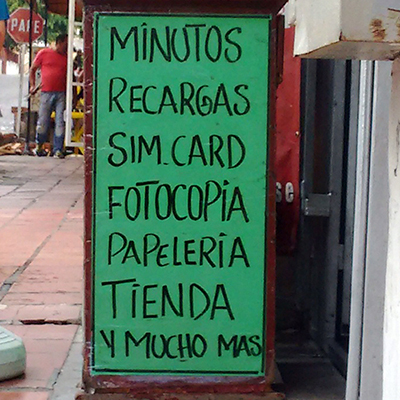 PARE
MINUTOS
RECARGAS
SIM-CARD
FOTOCOPIA
PAPELERÍA
TIENDA
Y MUCHO MAS
se